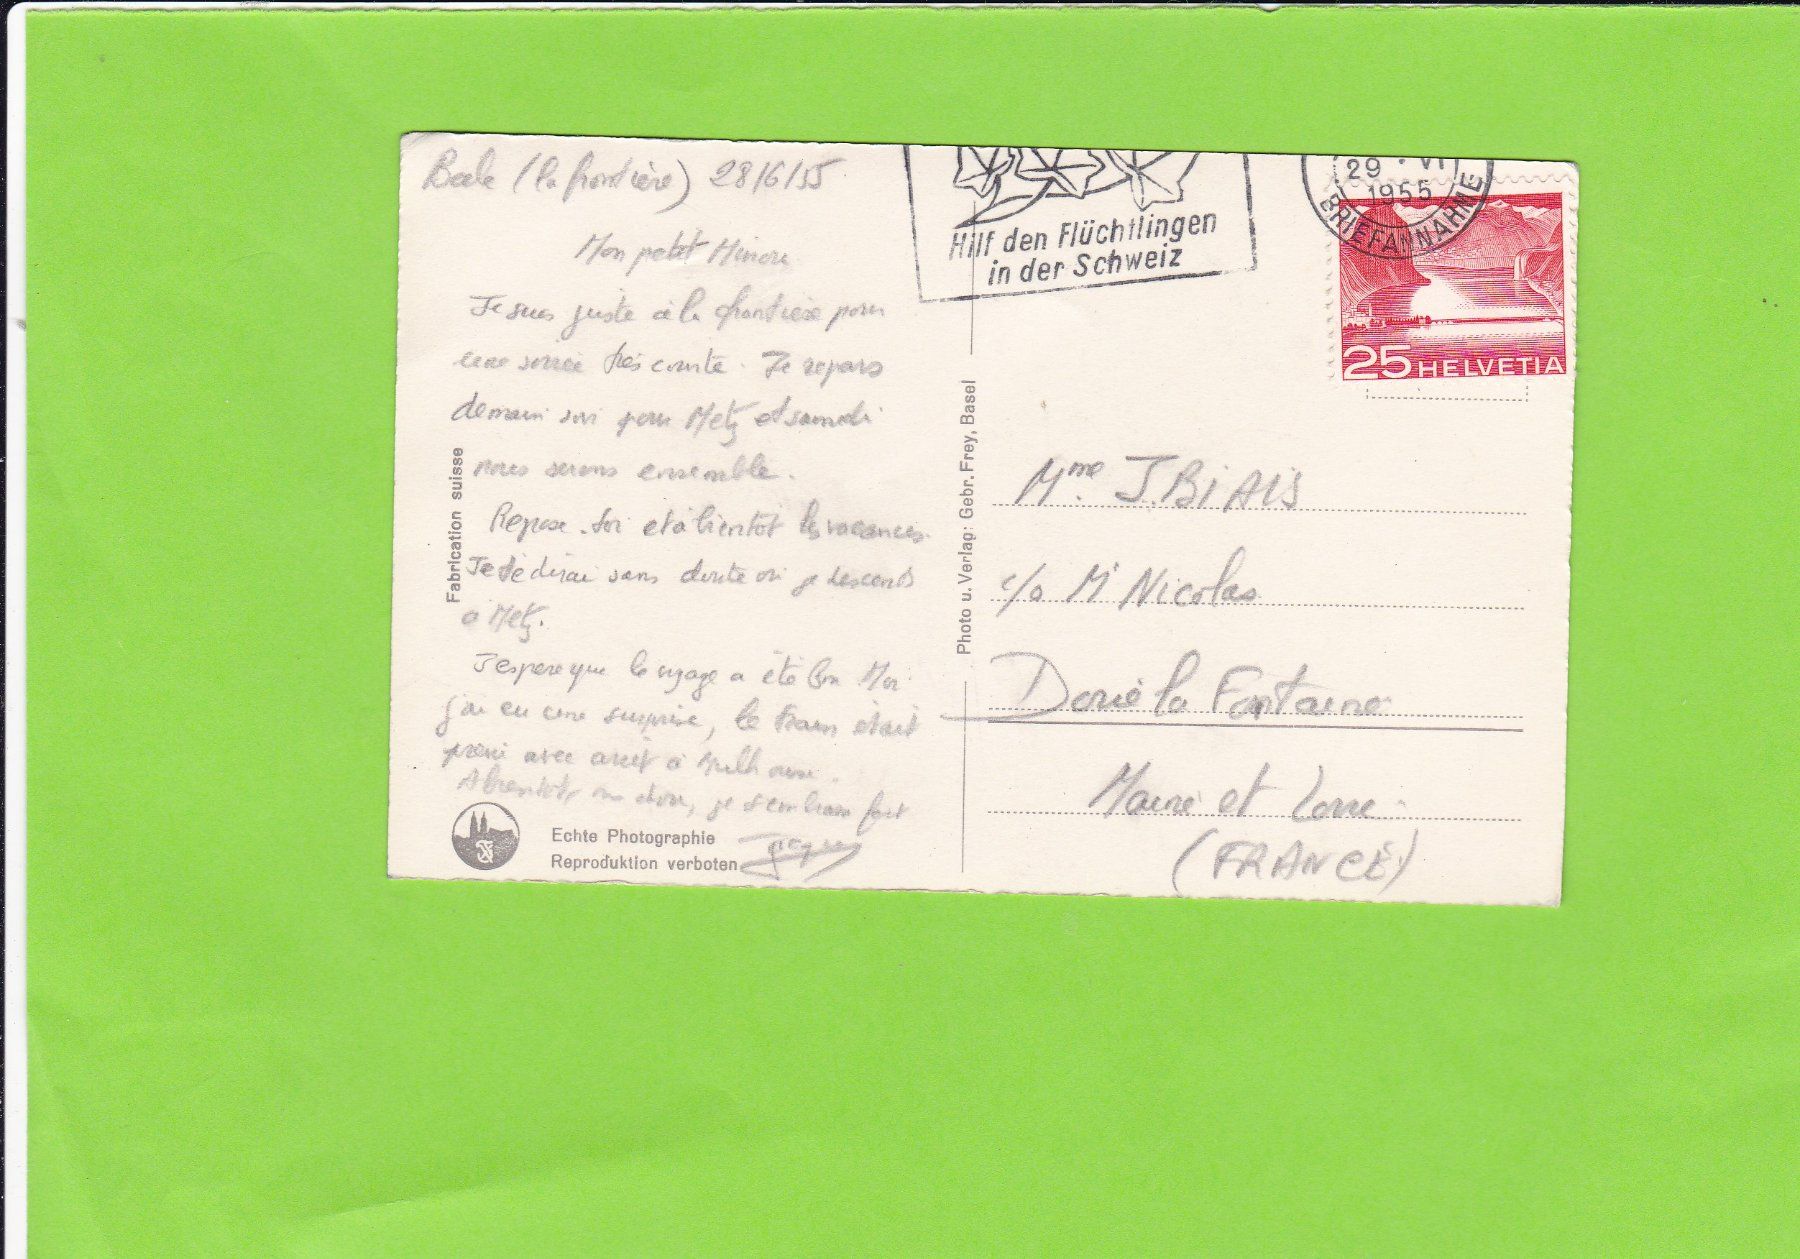 Bâle (la frontière) 28/6/55
Mon petit
Je suis juste à la frontière pour
une soirée très courte. Je repars
demain soir pour Metz et samedi
nous serons ensemble.
Repose-toi et à bientôt les vacances.
Je te dirai sans doute où je descends
à Metz.
J'espère que le voyage a été bon. Moi
j'ai eu une surprise, le train était
avec arrêt à Mulhouse.
A bientôt, je t'embrasse fort
Jacques
Fabrication suisse
Echte Photographie
Reproduktion verboten
Photo u. Verlag: Gebr. Frey, Basel
Hilf den Flüchtlingen
in der Schweiz
29 · VI
1955
BRIEFANNAHME
25 HELVETIA
Mme J. BIAIS
c/o Mr Nicolas
Doué la Fontaine
Maine et Loire
(FRANCE)